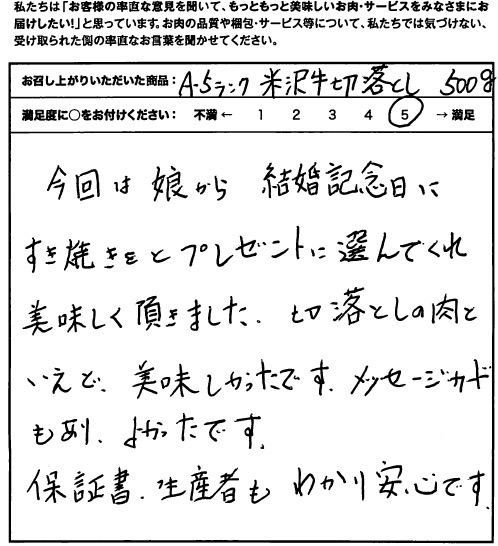 私たちは「お客様の率直な意見を聞いて、もっともっと美味しいお肉・サービスをみなさまにお
届けしたい!」と思っています。お肉の品質や梱包・サービス等について、私たちでは気づけない、
受け取られた側の率直なお言葉を聞かせてください。
お召し上がりいただいた商品: A-5ランク 米沢牛切落とし 500g
満足度に○をお付けください: 不満 ← 1 2 3 4 5 → 満足
今回は 娘から 結婚記念日に
すき焼きをとプレゼントに選んでくれ
美味しく頂きました。切落としの肉と
いえど、美味しかったです。メッセージカード
もあり、よかったです。
保証書、生産者も わかり安心です。